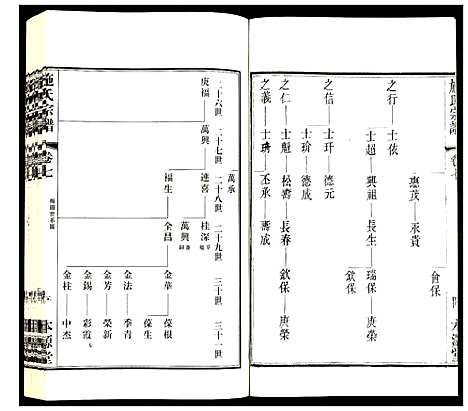 施氏宗譜
卷七
會保
惠茂 永貴
之行 士依
士超 興祖 長生 瑞保 庚榮
欽保
之信 士玕 德元
士玠 德成
之仁 士魁 松壽 長春 欽保 庚榮
之義 士琇 丕承 壽成
施氏宗譜 卷七 本源堂
二十六世 二十七世 二十八世 二十九世 三十世 三十一世
萬承
庚福 萬興 連喜 桂深
萬興
福生 全昌 金華 保根
保生
金法 季青
金芳 榮新
金錫 彩霞
金柱 中杰